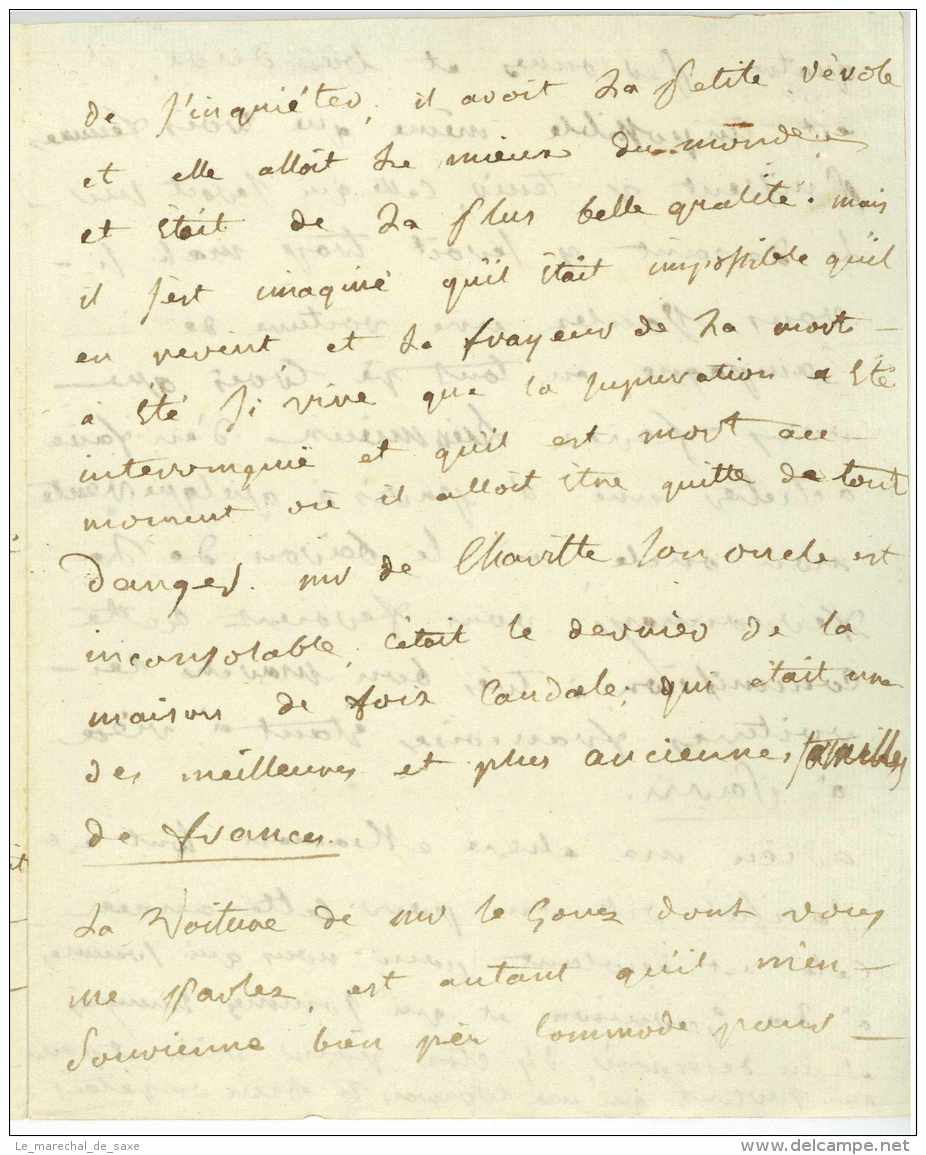 de s'inquiéter, il avoit la petite vérole
et elle alloit le mieux du monde
et étoit de la plus belle qualité. mais
il s'est imaginé qu'il étoit impossible qu'il
en revint et la frayeur de la mort
a été si vive que la supuration a été
interrompue et qu'il est mort au
moment ou il alloit être quitte de tout
danger. mr de son oncle est
inconsolable, c'étoit le dernier de la
maison de foix Candale, qui était une
des meilleures et plus anciennes familles
de france.
La Voiture de mr le dont vous
me parlez, est autant qu'il m'en
souvienne bien peu commode pour
Le_marechal_de_saxe
www.delcampe.net